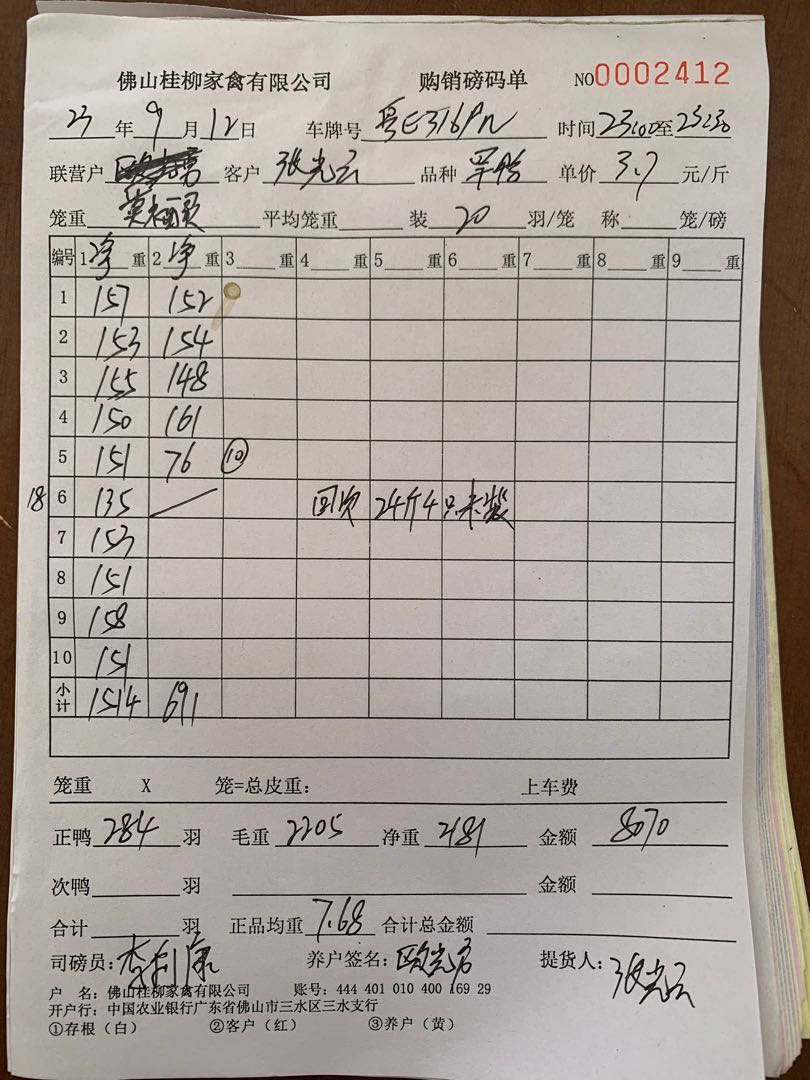 佛山桂柳家禽有限公司 购销磅码单 NO0002412
23年9月12日 车牌号 粤E316PN 时间23:00至23:30
联营户 客户 张光云 品种 单价 3.7 元/斤
笼重 平均笼重 装 20 羽/笼 称 笼/磅
编号 1净重 2净重 3 重 4 重 5 重 6 重 7 重 8 重 9 重
1 157 152
2 153 154
3 155 148
4 150 161
5 151 76 ⑩
18 6 135 / 回次 24斤4只未装
7 153
8 151
9 158
10 151
小计 1514 691
笼重 X 笼=总皮重: 上车费
正鸭 284 羽 毛重 2205 净重 2181 金额 8070
次鸭 羽 金额
合计 羽 正品均重 7.68 合计总金额
司磅员: 养户签名: 提货人: 张光云
户 名: 佛山桂柳家禽有限公司 账号: 444 401 010 400 169 29
开户行: 中国农业银行广东省佛山市三水区三水支行
①存根(白) ②客户(红) ③养户(黄)